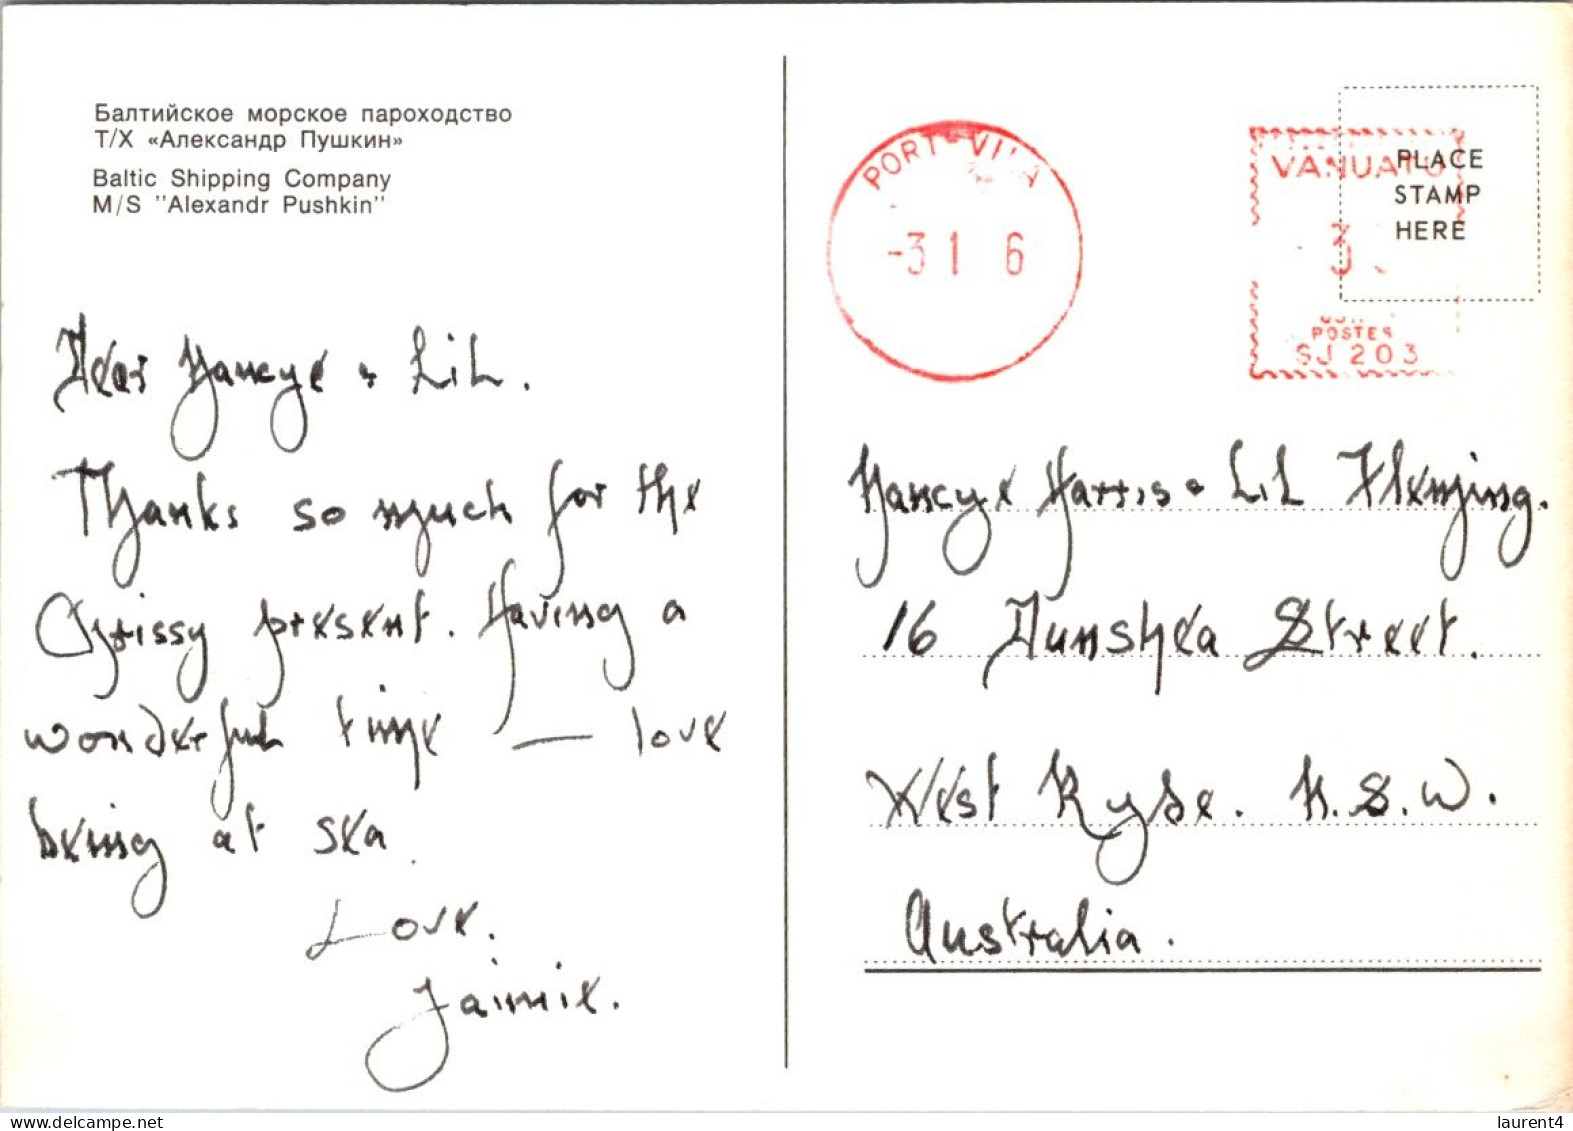 Балтийское морское пароходство
Т/Х «Александр Пушкин»
Baltic Shipping Company
M/S "Alexandr Pushkin"
Dear Nancye & Lil.
Thanks so much for the
Chrissy present. Having a
wonderful time — love
being at sea.
Love.
Jaimie.
PORT-VILA
-3 1 6
VANUATU
POSTES
SJ 203
PLACE
STAMP
HERE
Nancye Harris & Lil Flemjing.
16 Dunshea Street.
West Ryde. N.S.W.
Australia.
laurent4